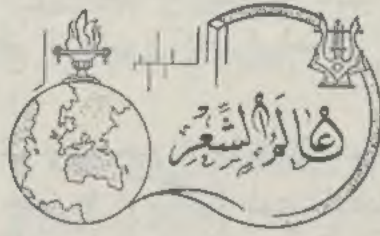 عالم الشعر